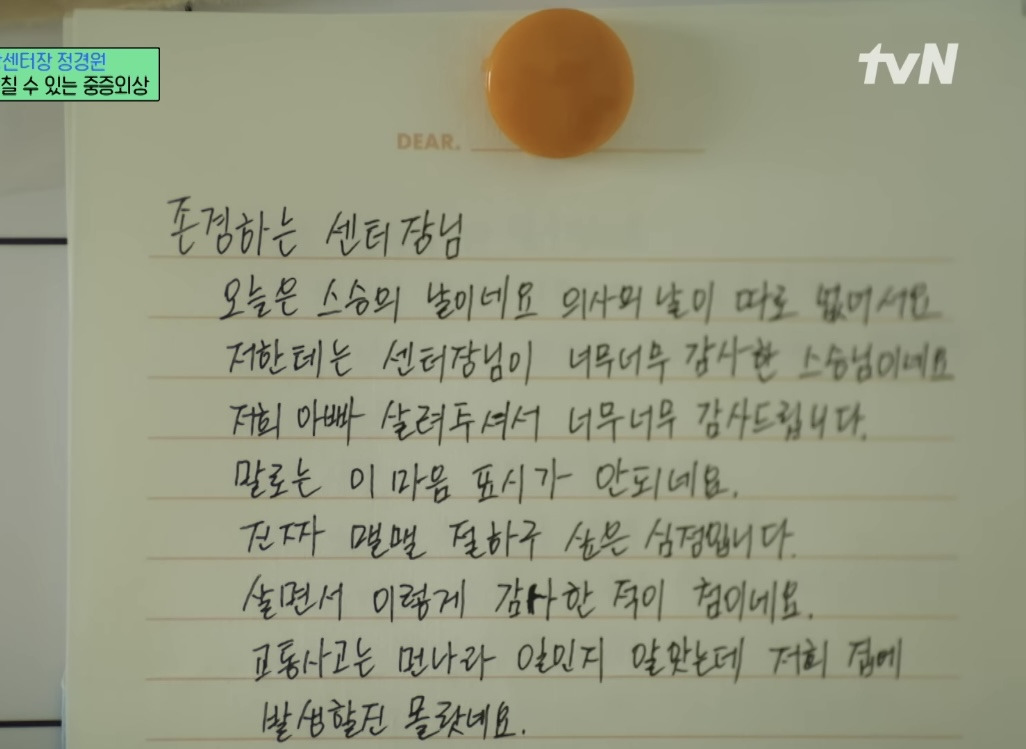 센터장 정경원
칠 수 있는 중증외상
tvN
DEAR.
존경하는 센터장님
오늘은 스승의 날이네요 의사의 날이 따로 없어서요
저한테는 센터장님이 너무너무 감사한 스승님이네요
저희 아빠 살려두셔서 너무너무 감사드립니다.
말로는 이 마음 표시가 안되네요.
진짜 맬맬 절하구 싶은 심정입니다.
살면서 이렇게 감사한 적이 첨이네요.
교통사고는 먼나라 일인지 알앗는데 저희 집에
발생할진 몰랏네요.